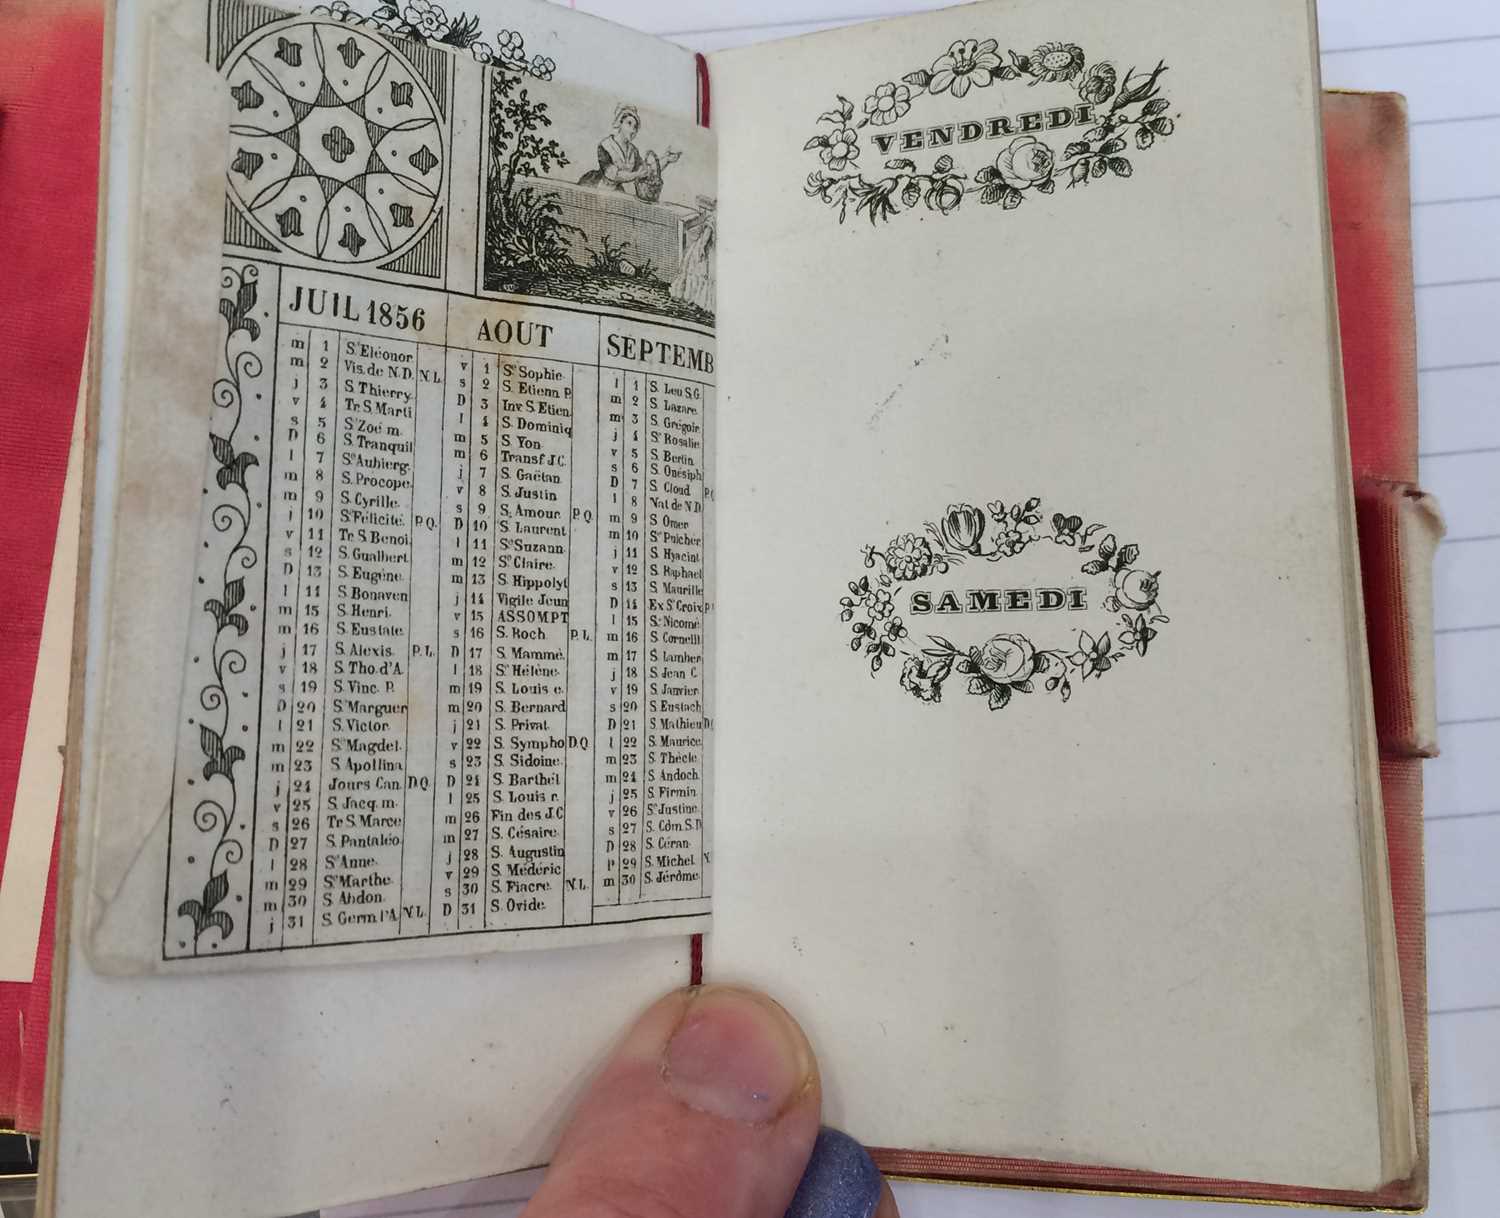 JUIL 1856
m 1 Sᵉ Eléonor
m 2 Vis. de N.D. N.L.
j 3 S. Thierry.
v 4 Tr. S. Marti
s 5 Sᵉ Zoé m.
D 6 S. Tranquil
l 7 Sᵉ Aubierg.
m 8 S. Procope.
m 9 S. Cyrille.
j 10 Sᵉ Félicité. P.Q.
v 11 Tr. S. Benoi.
s 12 S. Gualbert
D 13 S. Eugène.
l 14 S. Bonaven
m 15 S. Henri.
m 16 S. Eustate.
j 17 S. Alexis. P.L.
v 18 S. Tho. d'A.
s 19 S. Vinc. P.
D 20 Sᵉ Marguer
l 21 S. Victor.
m 22 Sᵉ Magdel.
m 23 S. Apollina
j 24 Jours Can. D.Q.
v 25 S. Jacq. m.
s 26 Tr S. Marce
D 27 S. Pantaléo.
l 28 Sᵉ Anne.
m 29 Sᵉ Marthe.
m 30 S. Abdon.
j 31 S. Germ. l'A. N.L.
AOUT
v 1 Sᵉ Sophie.
s 2 S. Etienn P.
D 3 Inv. S. Etien.
l 4 S. Dominiq
m 5 S. Yon.
m 6 Transf. J.C.
j 7 S. Gaëtan.
v 8 S. Justin
s 9 S. Amour. P.Q.
D 10 S. Laurent
l 11 Sᵉ Suzann.
m 12 Sᵉ Claire.
m 13 S. Hippolyt
j 14 Vigile Jeun
v 15 ASSOMPT
s 16 S. Roch. P.L.
D 17 S. Mammè.
l 18 Sᵉ Hélène.
m 19 S. Louis e.
m 20 S. Bernard
j 21 S. Privat.
v 22 S. Sympho D.Q.
s 23 S. Sidoine.
D 24 S. Barthél.
l 25 S. Louis r.
m 26 Fin des J.C
m 27 S. Césaire.
j 28 S. Augustin
v 29 S. Médéric
s 30 S. Fiacre. N.L.
D 31 S. Ovide.
SEPTEMB
l 1 S. Leu S.G.
m 2 S. Lazare.
m 3 S. Grégoir.
j 4 Sᵉ Rosalie.
v 5 S. Bertin.
s 6 S. Onésiph
D 7 S. Cloud P.Q
l 8 Nat de N.D.
m 9 S Omer
m 10 Sᵉ Pulcher.
j 11 S. Hyacint.
v 12 S. Raphael
s 13 S. Maurille
D 14 Ex Sᵉ Croix P.
l 15 S. Nicomè.
m 16 S. Corneill.
m 17 S. Lamber.
j 18 S. Jean C.
v 19 S. Janvier.
s 20 S. Eustach
D 21 S Mathieu D.
l 22 S. Maurice.
m 23 S. Thècle.
m 24 S. Andoch.
j 25 S. Firmin.
v 26 Sᵉ Justine.
s 27 S. Côm. S.D
D 28 S. Céran.
l 29 S. Michel. N.
m 30 S. Jérôme.
VENDREDI
SAMEDI